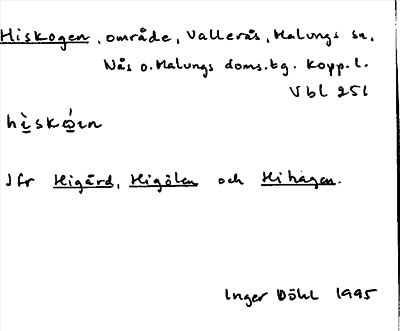 Hiskogen, område, Vallerås, Malungs sn,
Nås o. Malungs doms.tg. Kopp.l.
Vbl 251
Jfr Higård, Higölen och Hihagen.
Inger Döhl 1995